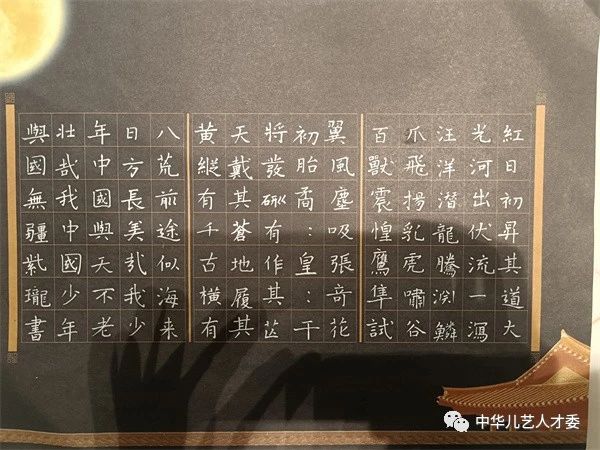 紅日初昇其道大
光河出伏流一瀉
汪洋潛龍騰淵鱗
爪飛揚乳虎嘯谷
百獸震惶鷹隼試
翼風塵吸張奇花
初胎矞：皇：干
將發硎有作其芒
天戴其蒼地履其
黄縱有千古橫有
八荒前途似海来
日方長美哉我少
年中國與天不老
壮哉我中國少年
與國無疆紫瓏書
中华儿艺人才委